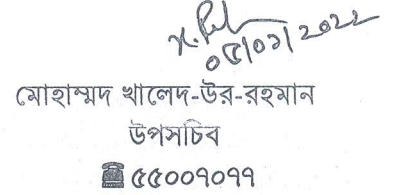 ০৫/০১/২০২২
মোহাম্মদ খালেদ-উর-রহমান
উপসচিব
☎ ৫৫০০৭০৭৭